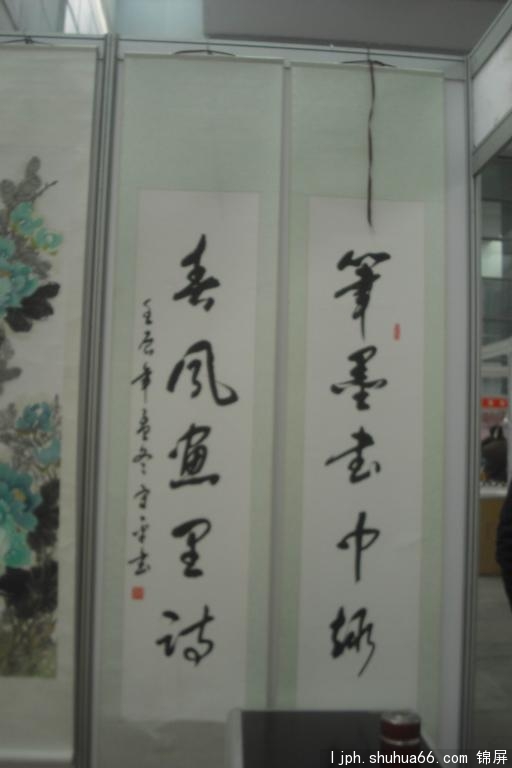 筆墨书中趣
春風画里诗
壬辰年孟冬守平书
ljph.shuhua66.com 锦屏